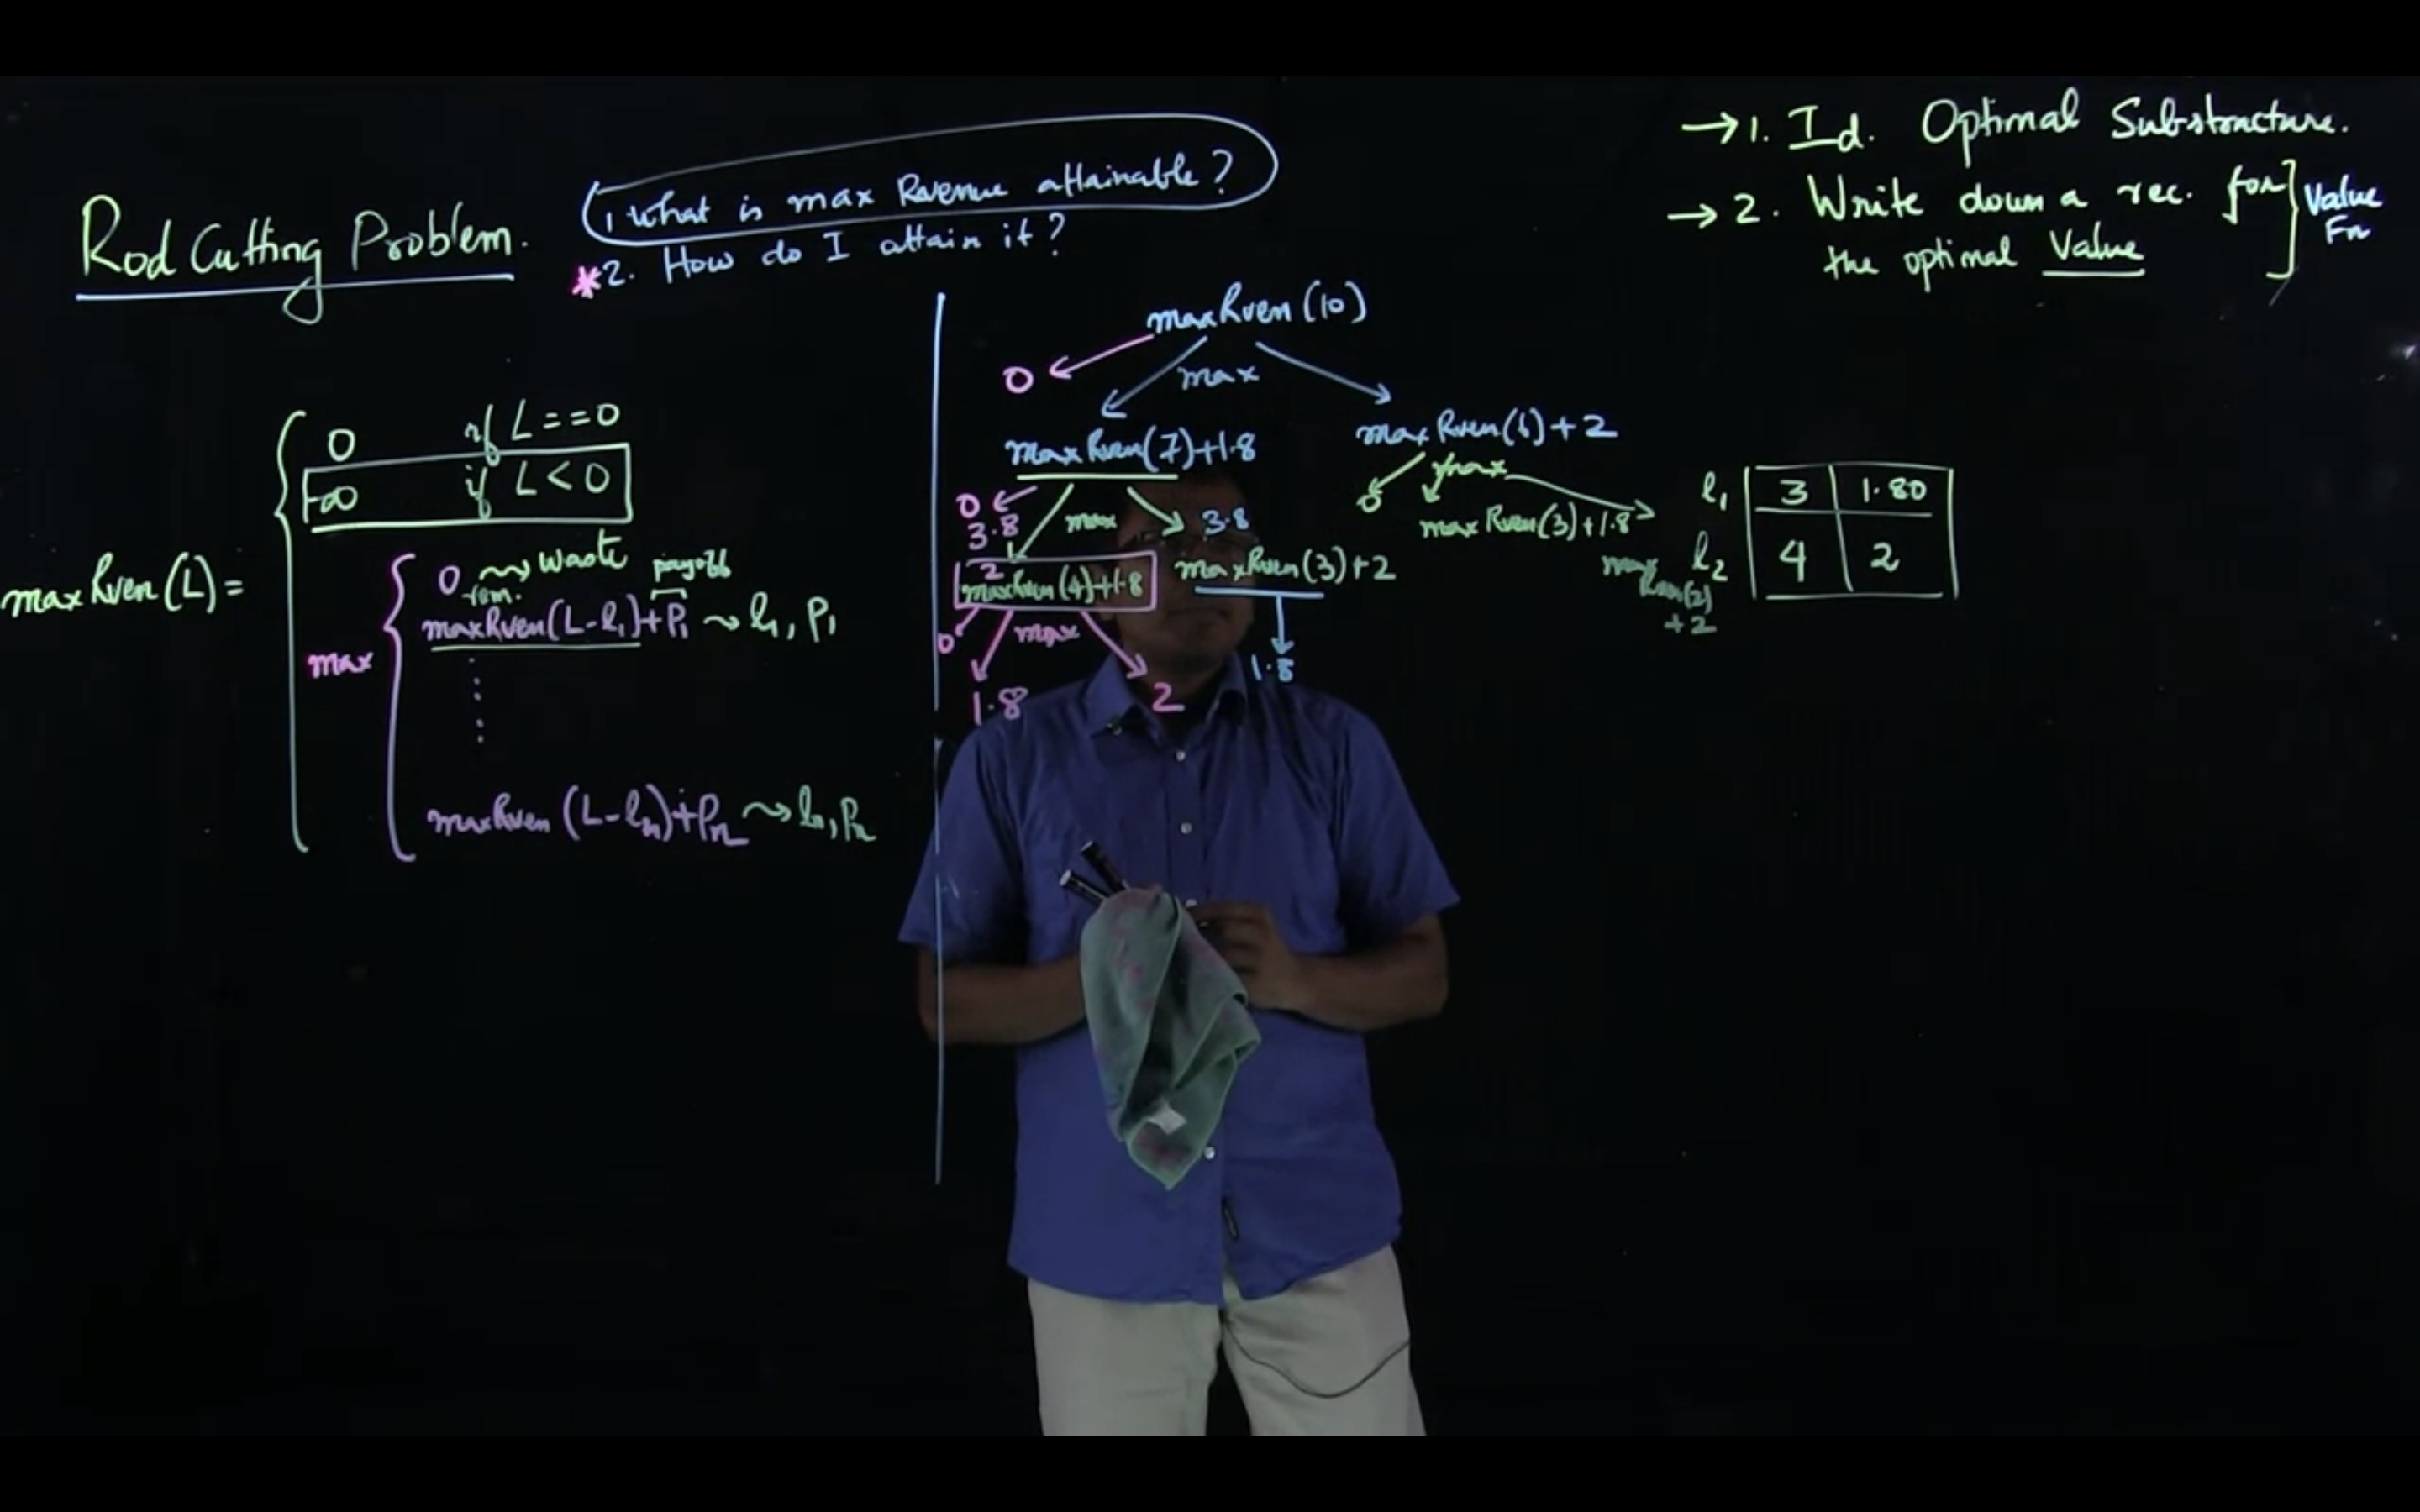 Rod Cutting Problem.
1 What is max Revenue attainable?
*2. How do I attain it?
→ 1. Id. Optimal Substructure.
→ 2. Write down a rec. for
the optimal Value
Value
Fn
maxRven(L) =
0 if L==0
-∞ if L<0
max
0 ⇝ waste
rem. payoff
maxRven(L-l₁)+P₁ ⇝ l₁, P₁
maxRven(L-lₙ)+Pₙ ⇝ lₙ, Pₙ
maxRven(10)
0 max
maxRven(7)+1.8 maxRven(6)+2
0 max 3.8
3.8
2
maxRven(4)+1.8 maxRven(3)+2
0 max
1.8 2 1.8
max
0 maxRven(3)+1.8
maxRven(2)
+2
l₁ 3 1.80
l₂ 4 2